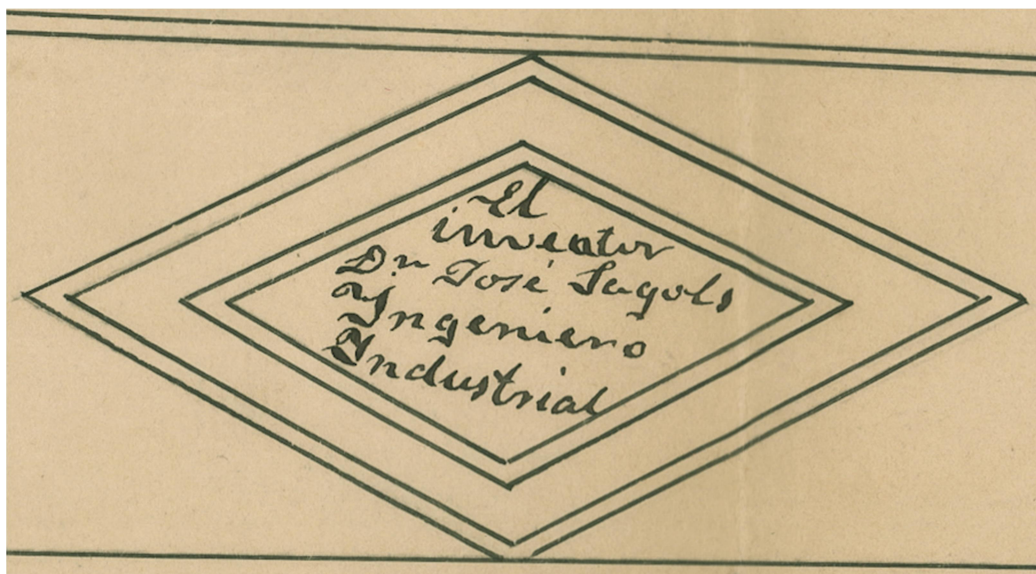 El
inventor
Dn José Sagols
Ingeniero
Industrial